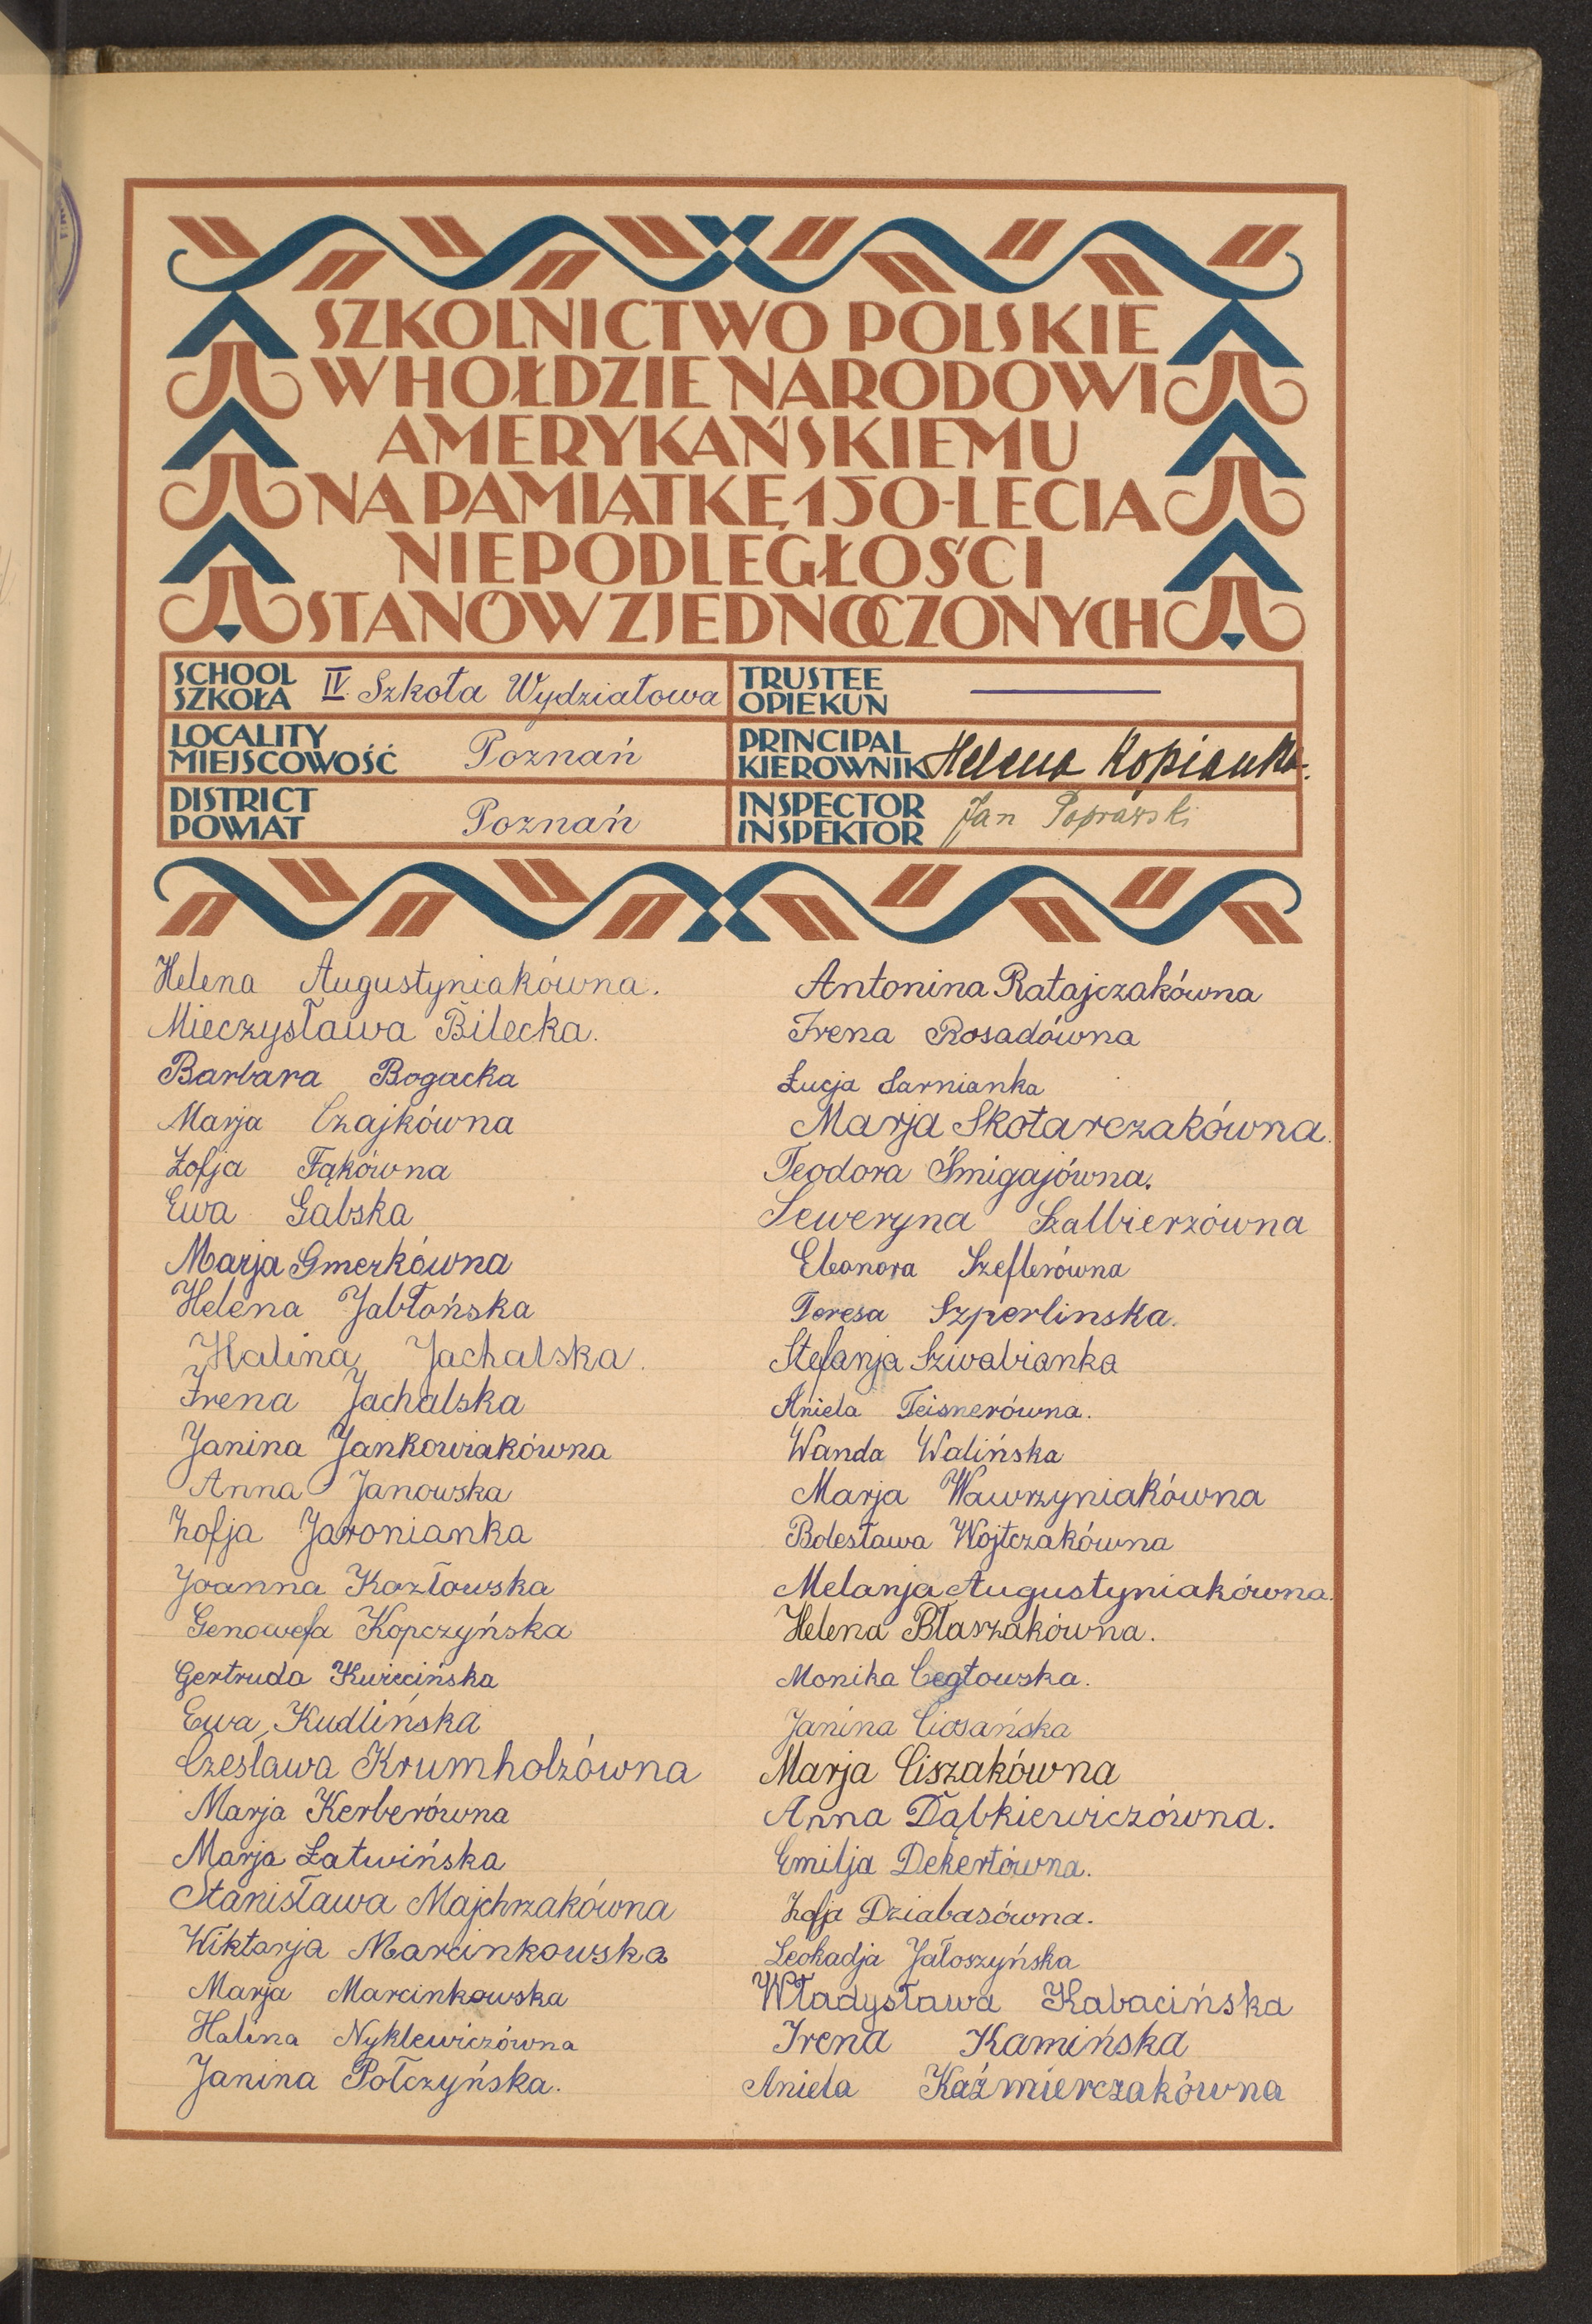 SZKOLNICTWO POLSKIE
W HOŁDZIE NARODOWI
AMERYKAŃSKIEMU
NA PAMIĄTKĘ 150-LECIA
NIEPODLEGŁOŚCI
STANÓW ZJEDNOCZONYCH
SCHOOL
SZKOŁA
IV. Szkoła Wydziałowa
TRUSTEE
OPIEKUN
LOCALITY
MIEJSCOWOŚĆ
Poznań
PRINCIPAL
KIEROWNIK
Helena Kopianka.
DISTRICT
POWIAT
Poznań
INSPECTOR
INSPEKTOR
Jan Poprawski
Helena Augustyniakówna.
Mieczysława Bilecka.
Barbara Bogacka
Marja Czajkówna
Zofja Fąkówna
Ewa Gabska
Marja Gmerkówna
Helena Jabłońska
Halina Jachalska.
Irena Jachalska
Janina Jankowiakówna
Anna Janowska
Zofja Jaronianka
Joanna Kozłowska
Genowefa Kopczyńska
Gertruda Kwiecińska
Ewa Kudlińska
Czesława Krumholzówna
Marja Kerberówna
Marja Łatwińska
Stanisława Majchrzakówna
Wiktorja Marcinkowska
Marja Marcinkowska
Halina Nyklewiczówna
Janina Połczyńska.
Antonina Ratajczakówna
Irena Rosadówna
Łucja Sarnianka
Marja Skotarczakówna.
Teodora Śmigajówna.
Seweryna Szalbierzówna
Eleonora Szeflerówna
Teresa Szperlinska.
Stefanja Szwabianka
Aniela Teisnerówna.
Wanda Walińska
Marja Wawrzyniakówna
Bolesława Wojtczakówna
Melanja Augustyniakówna.
Helena Błaszakówna.
Monika Cegłowska.
Janina Ciosańska
Marja Ciszakówna
Anna Dąbkiewiczówna.
Emilja Dekertówna.
Zofja Dziabasówna.
Leokadja Jałoszyńska
Władysława Kabacińska
Irena Kamińska
Aniela Kaźmierczakówna